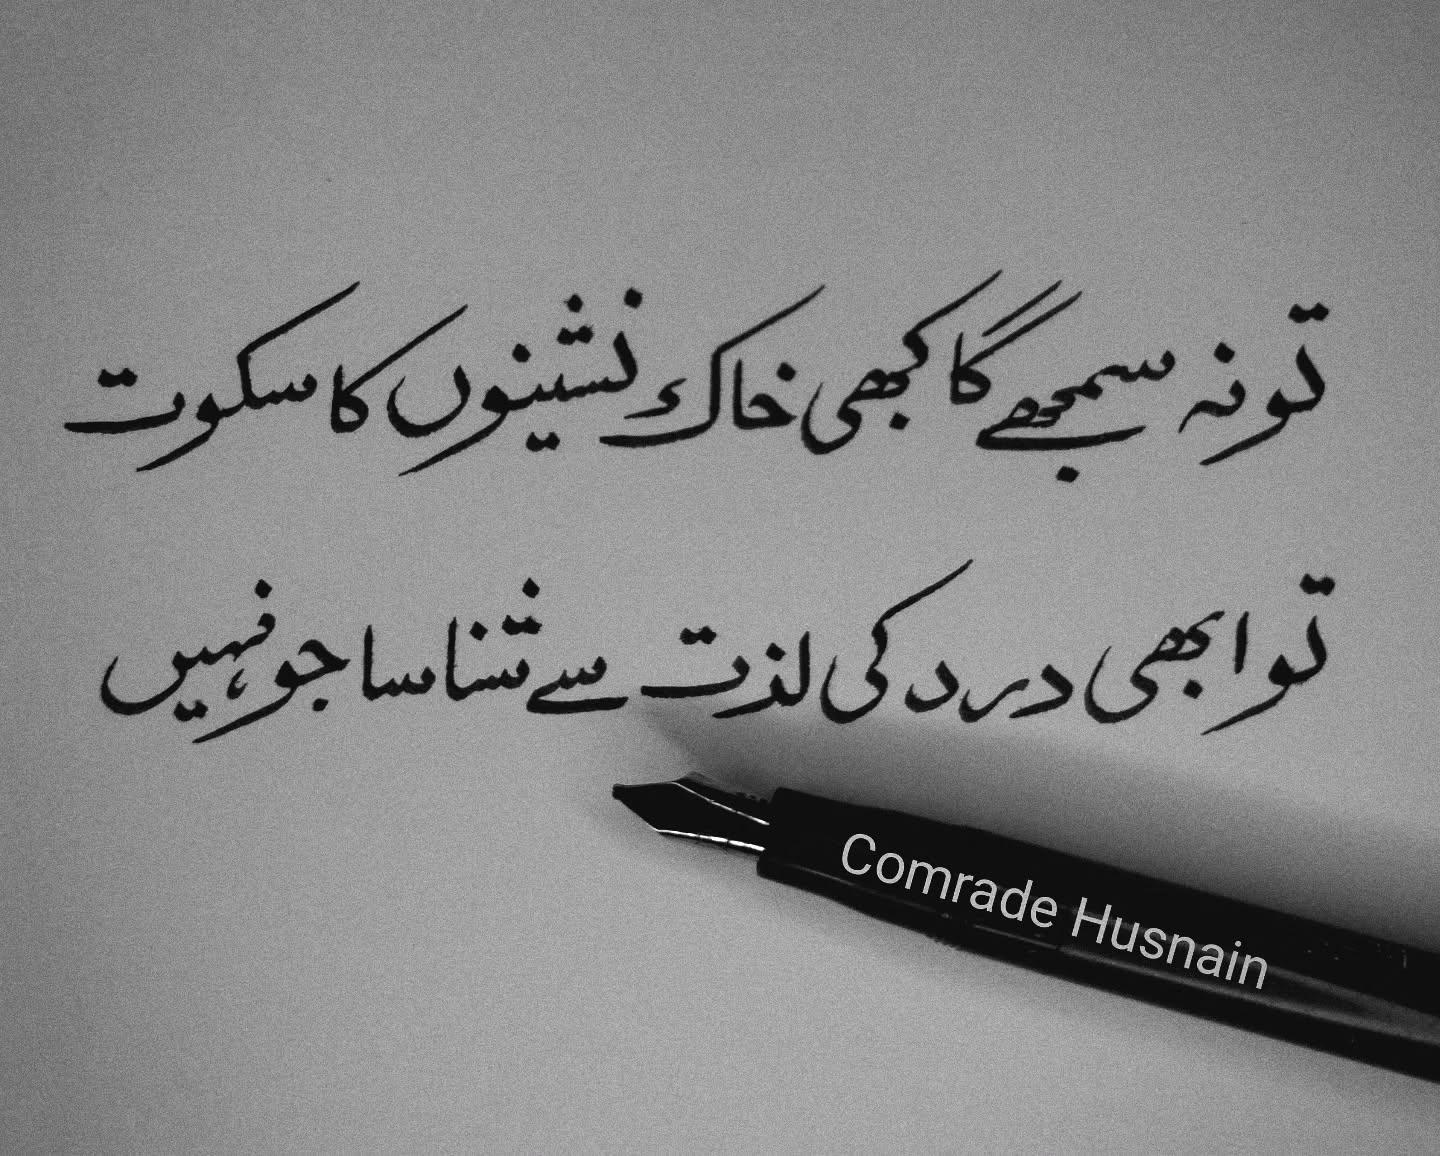 تو نہ سمجھے گا کبھی خاک نشینوں کا سکوت
تو ابھی درد کی لذت سے شناسا جو نہیں
Comrade Husnain